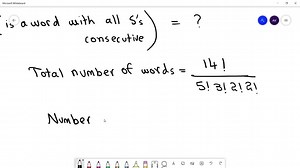 is a word with all S's ) = ?
consecutive
Total number of words = 14! / 5! 3! 2! 2!
Number